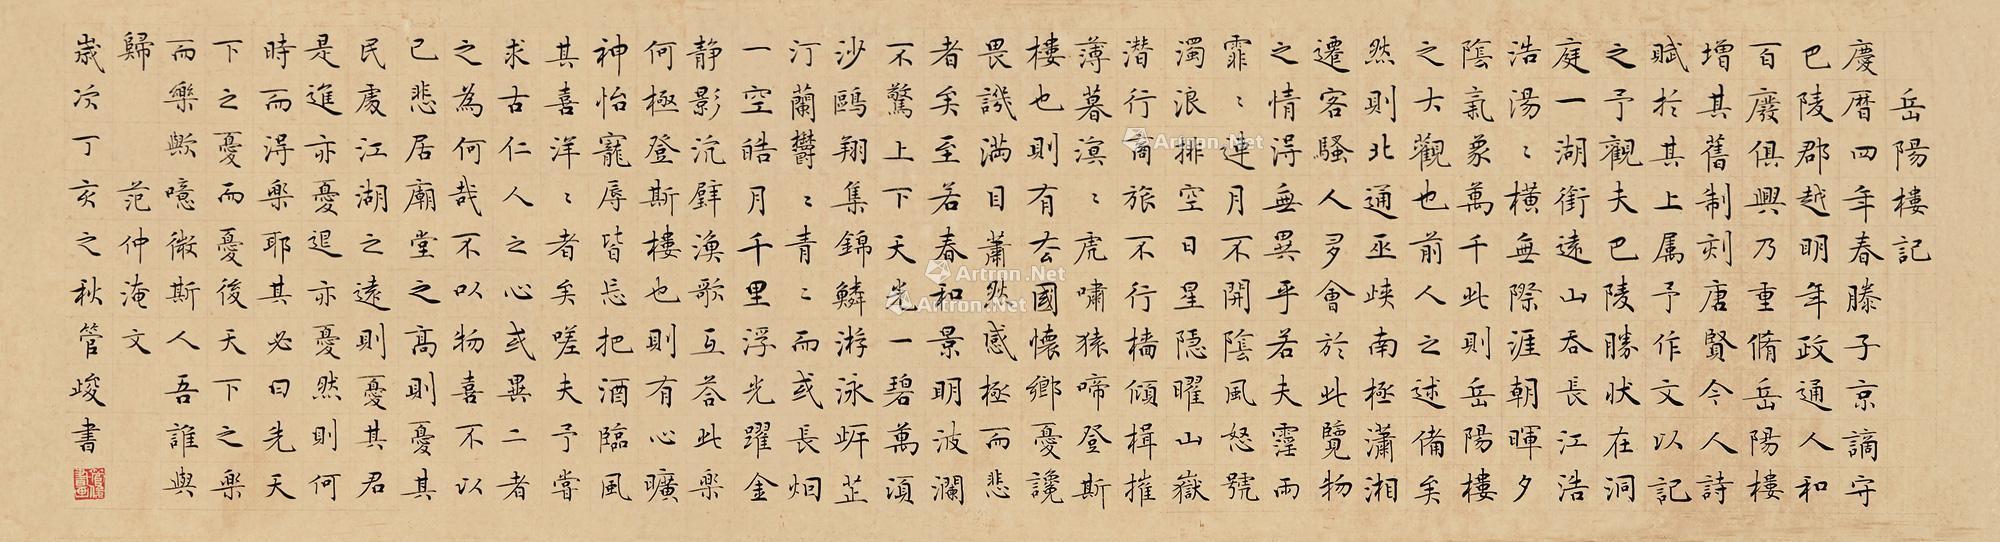 岳陽樓記
慶曆四年春滕子京謫守
巴陵郡越明年政通人和
百廢俱興乃重脩岳陽樓
增其舊制刻唐賢今人詩
賦於其上属予作文以記
之予觀夫巴陵勝狀在洞
庭一湖銜遠山吞長江浩
浩湯〻橫無際涯朝暉夕
陰氣象萬千此則岳陽樓
之大觀也前人之述備矣
然則北通巫峽南極瀟湘
遷客騷人多會於此覽物
之情得無異乎若夫霪雨
霏〻連月不開陰風怒號
濁浪排空日星隱曜山嶽
潛行商旅不行檣傾楫摧
薄暮溟〻虎嘯猿啼登斯
樓也則有去國懷鄉憂讒
畏譏滿目蕭然感極而悲
者矣至若春和景明波瀾
不驚上下天光一碧萬頃
沙鷗翔集錦鱗游泳岸芷
汀蘭鬱〻青〻而或長烟
一空皓月千里浮光躍金
靜影沉璧漁歌互答此樂
何極登斯樓也則有心曠
神怡寵辱皆忘把酒臨風
其喜洋〻者矣嗟夫予嘗
求古仁人之心或異二者
之為何哉不以物喜不以
己悲居廟堂之高則憂其
民處江湖之遠則憂其君
是進亦憂退亦憂然則何
時而得樂耶其必曰先天
下之憂而憂後天下之樂
而樂歟噫微斯人吾誰與
歸　范仲淹文
歲次丁亥之秋管峻書
Artron.Net
Artron.Net
Artron.Net